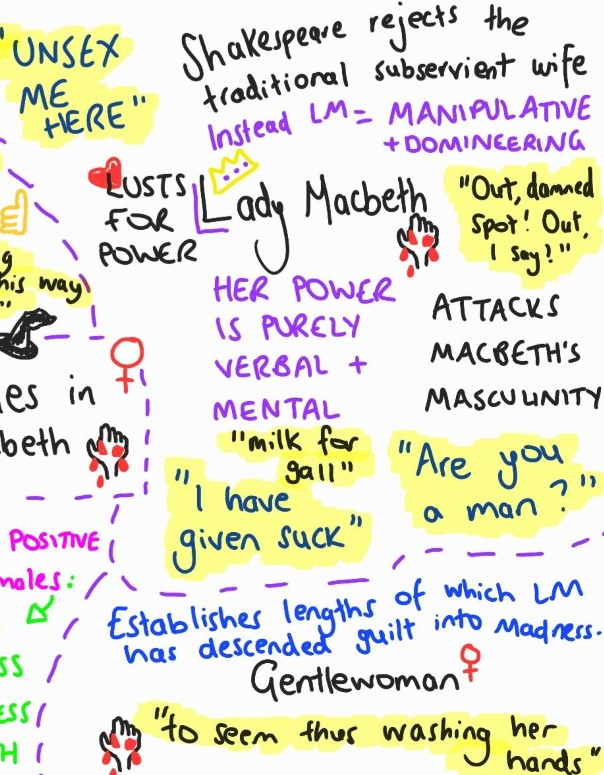 "UNSEX
ME
HERE"
Shakespeare rejects the
traditional subservient wife
Instead LM = MANIPULATIVE
+ DOMINEERING
LUSTS
FOR
POWER
Lady Macbeth
"Out, damned
spot! Out,
I say?"
his way
"
HER POWER
IS PURELY
VERBAL +
MENTAL
ATTACKS
MACBETH'S
MASCULINITY
es in
beth
"milk for
gall"
"I have
given suck"
"Are you
a man?"
POSITIVE
males:
SS
ESS
H
Establishes lengths of which LM
has descended guilt into Madness.
Gentlewoman
"to seem thus washing her
hands"